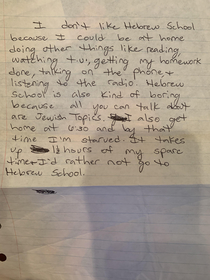 I don't like Hebrew School
because I could be at home
doing other things like reading,
watching t.v., getting my homework
done, talking on the phone +
listening to the radio. Hebrew
School is also kind of boring
because all you can talk about
are Jewish Topics. I also get
home at 6:30 and by that
time I'm starved. It takes
up hours of my spare
time + I'd rather not go to
Hebrew School.